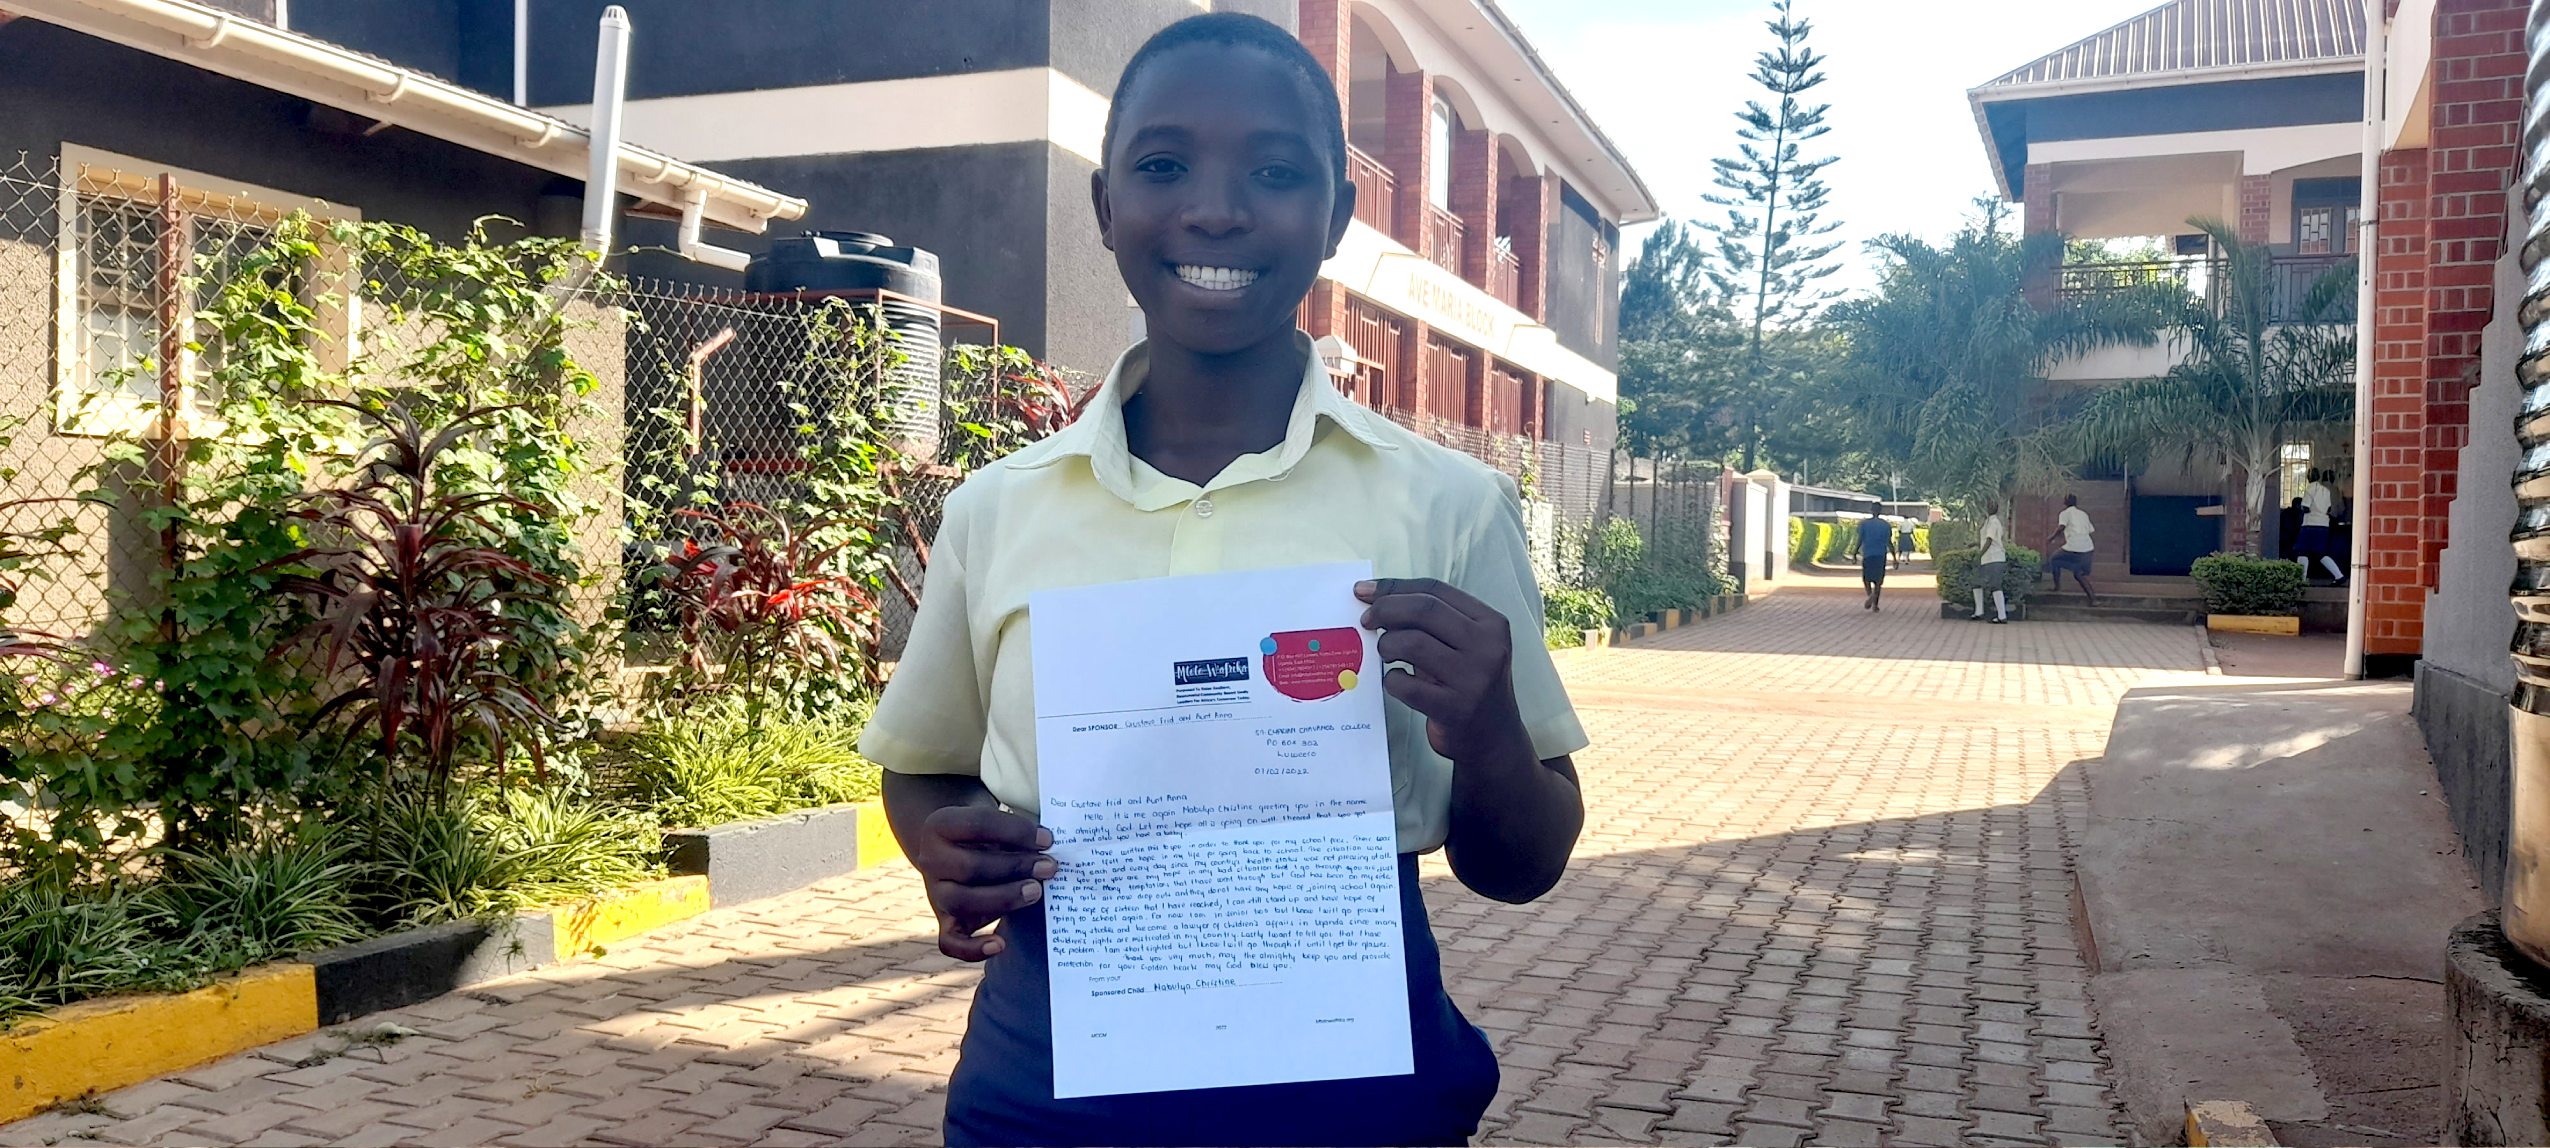 AVE MARIA BLOCK
Mtoto Wafrika
Purposed To Raise Resilient,
Resourceful Community Based Godly
Leaders For Africa's Tomorrow Today.
Uganda, East Africa
Dear SPONSOR Gustave Frid and Aunt Anna
ST. CHAVAMOS COLLEGE
PO BOX 302
Luweero
01/02/2022
Dear Gustave Frid and Aunt Anna
Hello. It is me again Nabulya Christine greeting you in the name
the almighty God. Let me hope all is going on well. I heared that you got
married and also you have a baby.
I have written this to you in order to thank you for my school fees. There was
time when I felt no hope in my life for going back to school. The cituation was
each and every day since my country's health status was not pleasing at all.
thank you for you are my hope in any bad cituation that I go through you are just
there for me. Many temptations that I have went through but God has been on my side.
Many girls are now drop outs and they do not have any hope of joining school again.
At the age of sixteen that I have reached, I can still stand up and have hope of
going to school again. For now I am in senior two but I know I will go forward
with my studies and become a lawyer of children's affairs in Uganda since many
children's rights are in my country. Lastly I want to tell you that I have
eye problem. I am short sighted but I know I will go through it until I get the glasses.
Thank you very much, may the almighty keep you and provide
protection for your Golden hearts may God bless you.
From your
Sponsored Child Nabulya Christine
MCCM 2022 Mtotowafrika.org